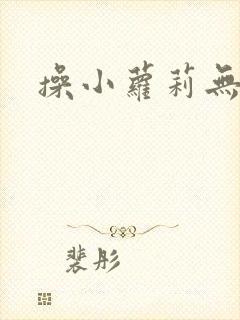 操小蘿莉無
裴彤